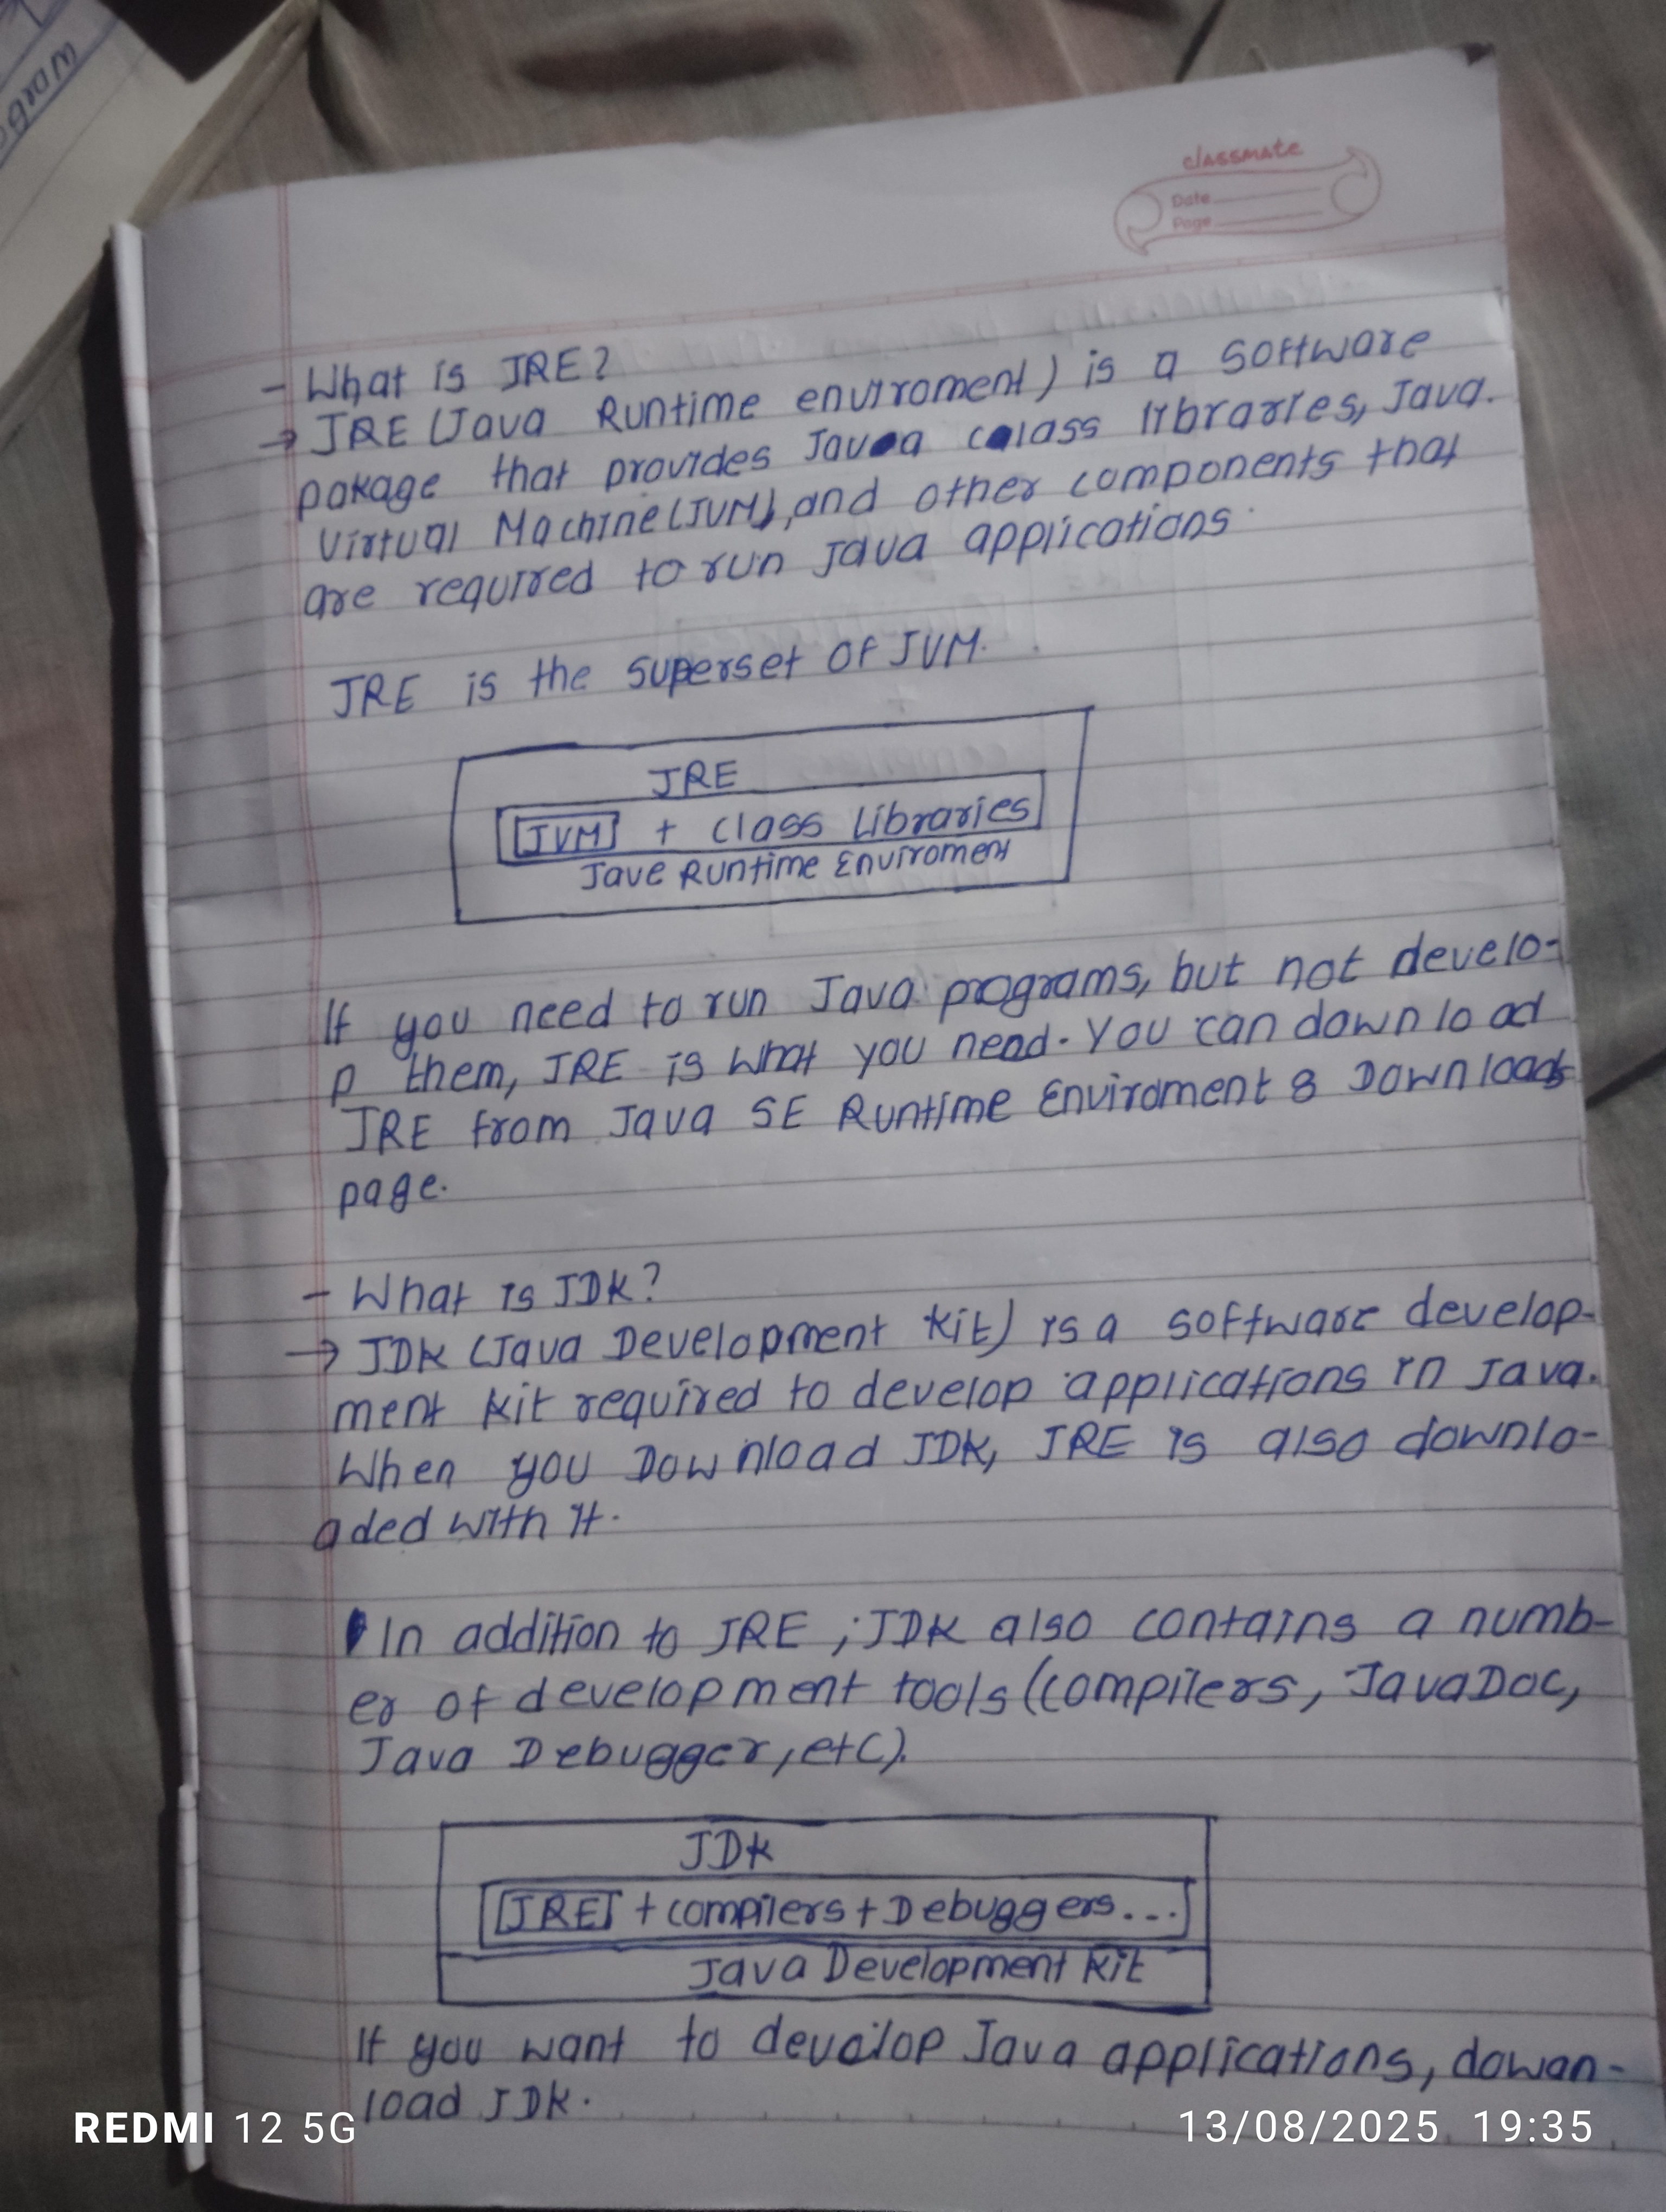 wargo
classmate
Date
Page
- What is JRE?
→ JRE (Java Runtime enviroment) is a software
pakage that provides Java calass libraries, Java.
Virtual Machine (JVM), and other components that
are required to run Java applications.
JRE is the superset of JVM.
JRE
JVM + Class Libraries
Jave Runtime Enviroment
If you need to run Java programs, but not develo-
p them, JRE is what you need. You can download
JRE from Java SE Runtime Enviroment 8 Downloads
page.
- What is JDK?
→ JDK (Java Development Kit) is a software develop-
ment kit required to develop applications in Java.
When you Download JDK, JRE is also downlo-
aded with it.
In addition to JRE, JDK also contains a numb-
er of development tools (compilers, JavaDoc,
Java Debugger, etc).
JDK
JRE + compilers + Debuggers...
Java Development Kit
If you want to develop Java applications, dowan-
load JDK.
REDMI 12 5G
13/08/2025 19:35